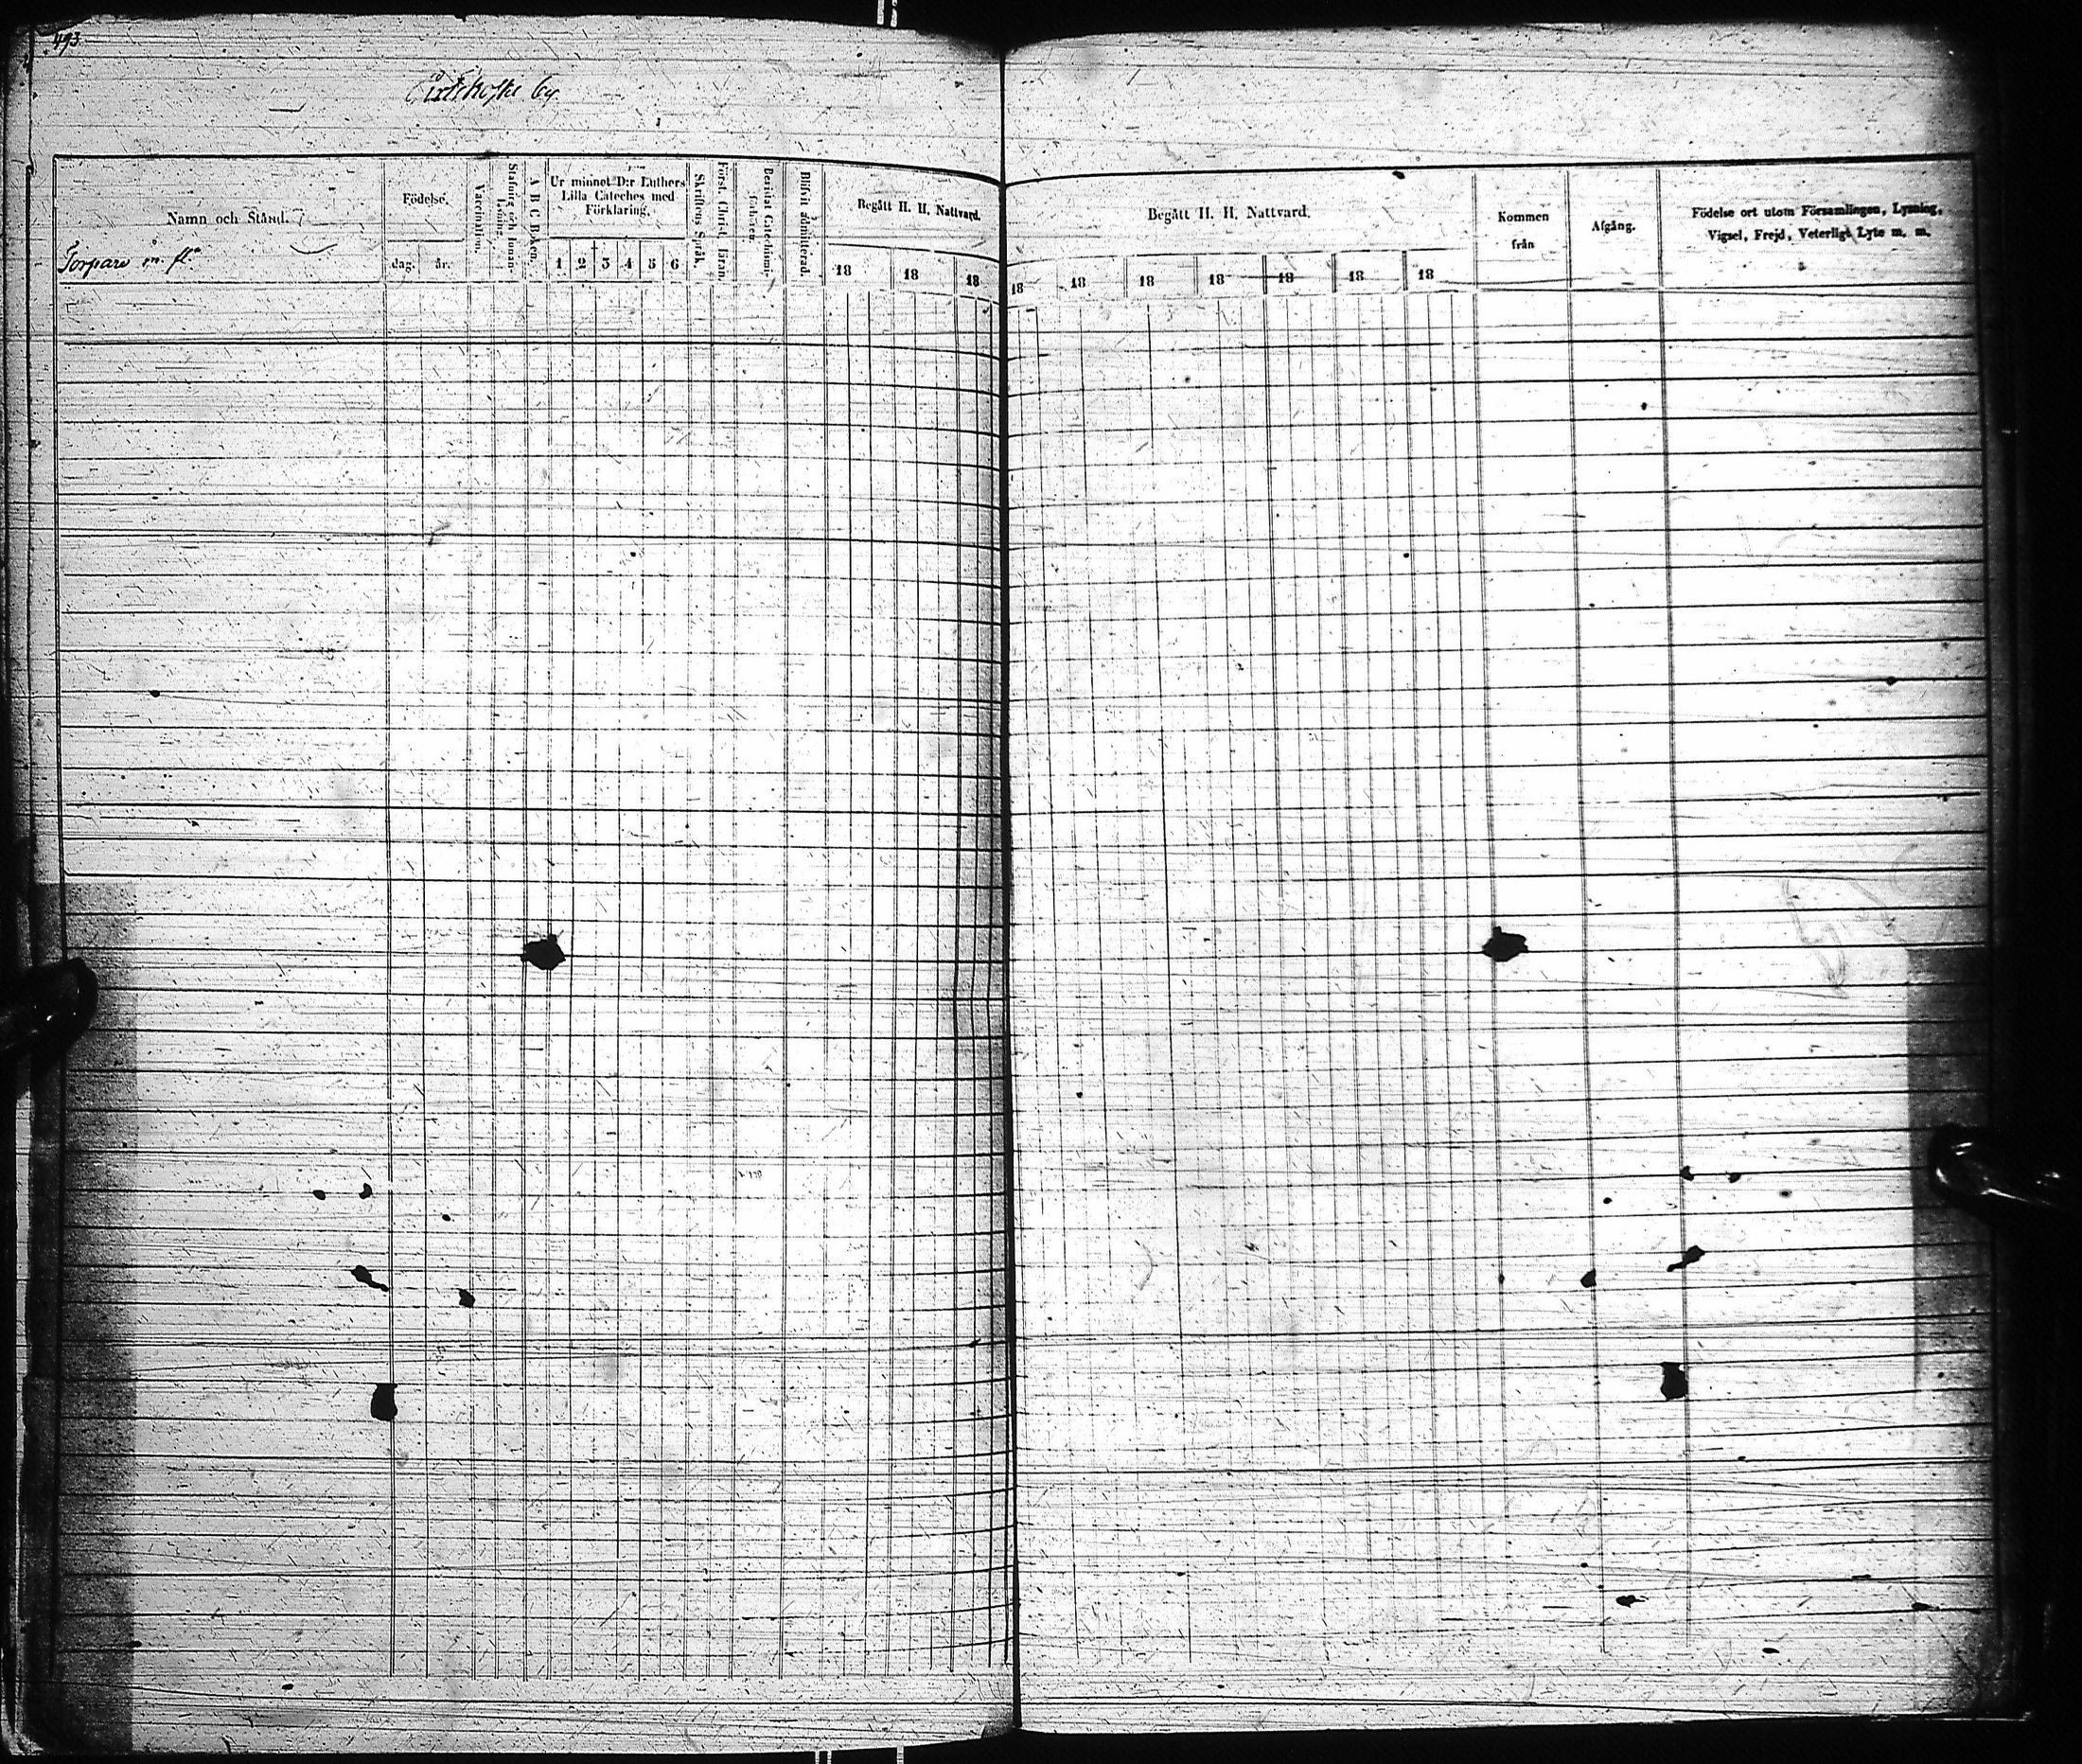 493
by
Namn och Stånd.
Torpare m. fl.
Födelse.
dag. år.
Vaccination.
Stafning och Innan-
läsning.
A B C Boken.
Ur minnet D:r Luthers
Lilla Cateches med
Förklaring.
1 2 3 4 5 6
Skriftens Språk.
Först. Christ. läran
Bevistat Catechismi-
förhören.
Blifvit admitterad.
Begått H. H. Nattvard.
18 18 18
Begått H. H. Nattvard.
18 18 18 18 18 18 18
Kommen
från
Afgång.
Födelse ort utom Församlingen, Lysning,
Vigsel, Frejd, Veterligt Lyte m. m.